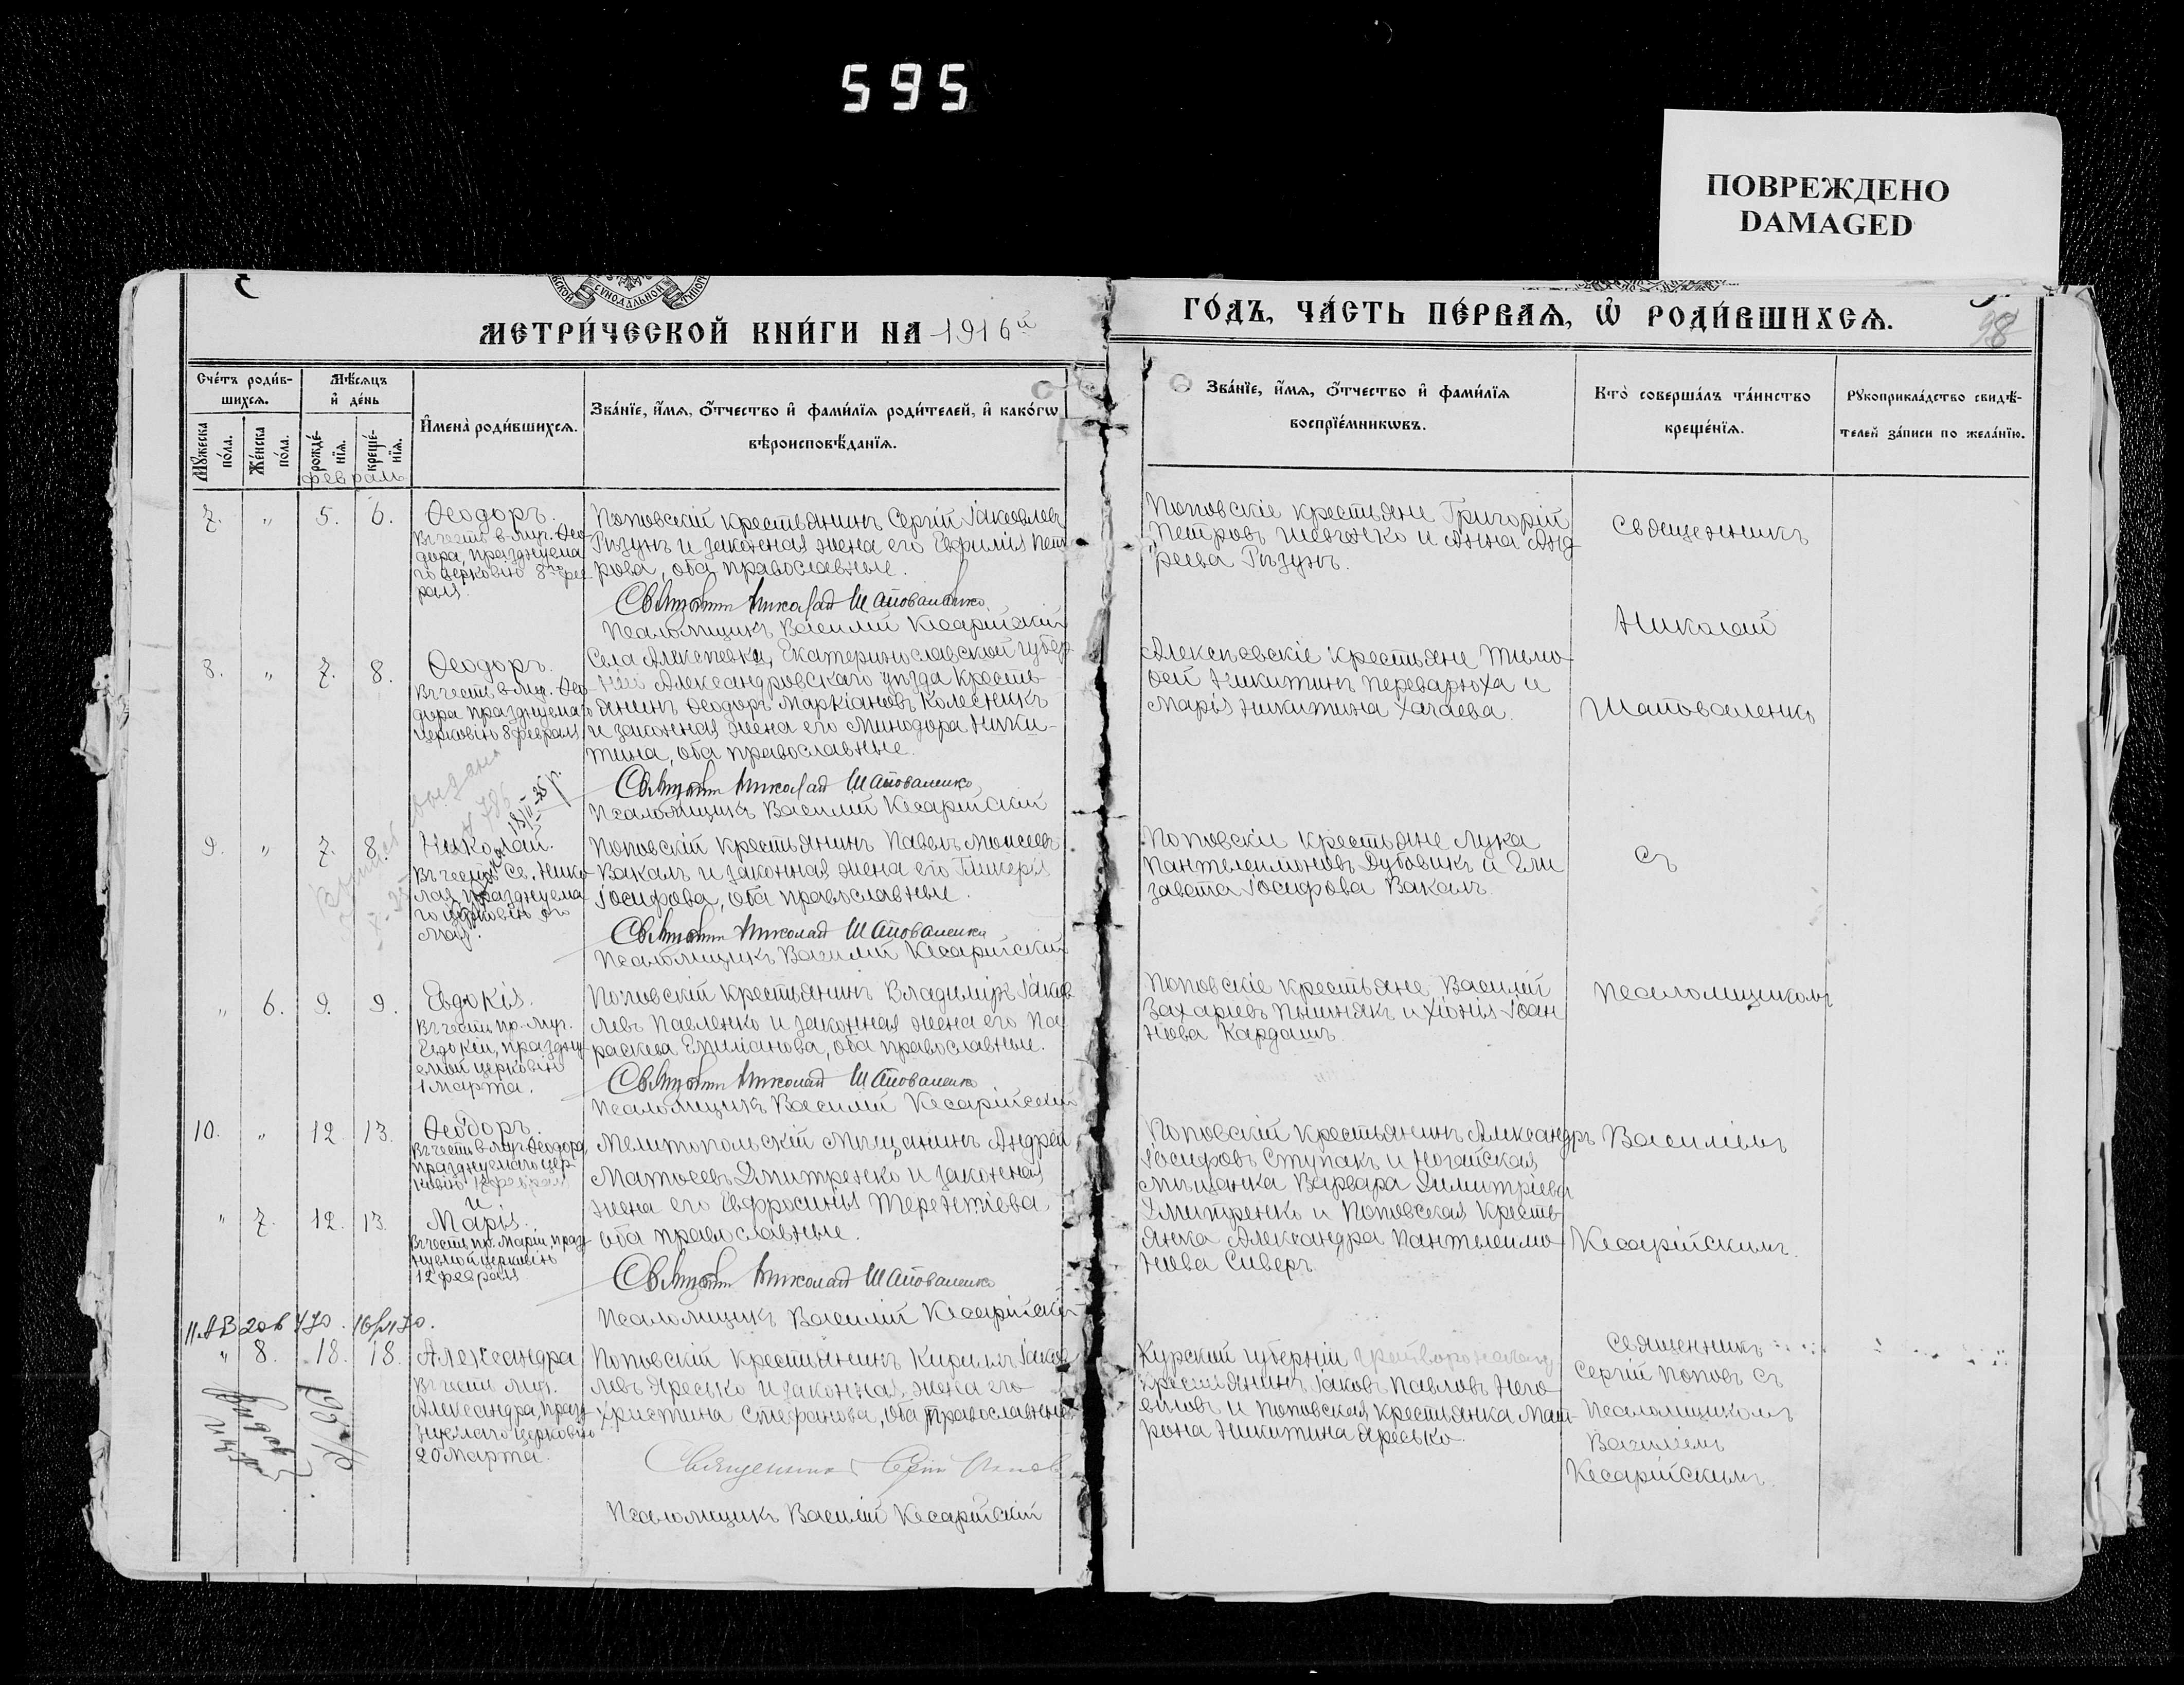 595
ПОВРЕЖДЕНО
DAMAGED
МЕТРИ́ЧЕСКОЙ КНИ́ГИ НА 1916й
ГО́ДЪ, ЧА́СТЬ ПЕ́РВАѦ, Ѡ҆ РОДИ́ВШИХСѦ.
98
Сче́тъ роди́в-
шихсѧ.
Мѣ́сѧцъ
и҆ де́нь
И҆мена̀ роди́вшихсѧ.
Зва́нїе, и҆́мѧ, ѻ҆́тчество и҆ фами́лїѧ роди́телей, и҆ како́гѡ
вѣроисповѣ́данїѧ.
Зва́нїе, и҆́мѧ, ѻ҆́тчество и҆ фами́лїѧ
воспрїе́мникѡвъ.
Кто̀ соверша́лъ та́инство
креще́нїѧ.
Рꙋкоприкла́дство свидѣ́-
телей за́писи по жела́нїю.
Мꙋ́жеска
по́ла.
Же́нска
по́ла.
рожде́-
нїѧ.
креще́-
нїѧ.
февраль
7. " 5. 6.
Ѳеодоръ.
Въ честь в-муч. Ѳео
дора, празднуема
го церковію 8го фев
раля.
Поповскій крестьянинъ Сергій Іаковлевъ
Рѣзунъ и законная жена его Евфимія Пет
рова, оба православные.
Священникъ Николай Шаповаленко
Псаломщикъ Василий Кесарійскій
Поповскіе крестьяне Григорій
Петровъ Шевченко и Анна Анд
реева Рѣзунъ.
Священникъ
Николай
Шаповаленко
съ
псаломщикомъ
Василіемъ
Кесарійскимъ.
8. " 7. 8.
Ѳеодоръ.
Въ честь в-муч. Ѳео
дора празднуемаго
церковію 8 февраля
Села Алексѣевки, Екатеринославской губер
ніи Александровскаго уѣзда кресть-
янинъ Ѳеодоръ Маркіановъ Колесникъ
и законная жена его Минодора Ники-
тина, оба православные.
Священникъ Николай Шаповаленко
Псаломщикъ Василий Кесарійскій
Алексѣевскіе крестьяне Тимо
ѳей Никитинъ Переварюха и
Марія Никитина Хачаева.
9. " 7. 8.
Николай.
Въ честь Св. Нико
лая, празднуема
го церковію 9го
мая.
Поповскій крестьянинъ Павелъ Моисеевъ
Вакалъ и законная жена его Гликерія
Іосифова, оба православные.
Священникъ Николай Шаповаленко
Псаломщикъ Василий Кесарійскій
Поповскіе крестьяне Лука
Пантелеимоновъ Дубовикъ и Ели
завета Іосифова Вакалъ.
" 6. 9. 9.
Евдокія.
Въ честь пр. муч.
Евдокіи, праздну-
емой церковію
1 марта.
Поповскій крестьянинъ Владиміръ Іаков
левъ Павленко и законная жена его Па
раскева Емиліанова, оба православные.
Священникъ Николай Шаповаленко
Псаломщикъ Василий Кесарійскій
Поповскіе крестьяне, Василій
Захаріевъ Пышнякъ и Хіонія Іоан
нова Кардашъ.
10. " 12. 13.
Ѳеодоръ.
Въ честь в-муч. Ѳеодора
празднуемаго цер
ковію февраля
и
" 7. 12. 13.
Марія.
Въ честь пр. Маріи, праз
нуемой церковію
12 февраля
Мелитопольскій мѣщанинъ Андрей
Матѳеевъ Дмитренко и законная
жена его Евфросинія Терентіева,
оба православные.
Священникъ Николай Шаповаленко
Псаломщикъ Василий Кесарійскій
Поповскій крестьянинъ Александръ
Іосифовъ Ступакъ и Ногайская
мѣщанка Варвара Димитріева
Дмитренко и Поповская кресть
янка Александра Пантелеимо
нова Сиверъ.
" 8. 18. 18.
Александра
Въ честь муч.
Александра, праз
нуемаго церковію
20 марта.
Поповскій крестьянинъ Кириллъ Іаков
левъ Яресько и законная жена его
Христина Стефанова, оба православные
Священникъ Сергій Поповъ
Псаломщикъ Василій Кесарійскій
Курской губерніи
крестьянинъ Іаковъ Павловъ
и Поповская крестьянка Мат-
рона Никитина Яресько.
Священникъ
Сергій Поповъ съ
псаломщикомъ
Василіемъ
Кесарійскимъ.